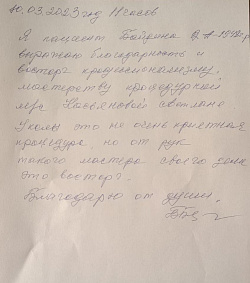 10.03.2023 год 11 часов
Я пациент
выражаю благодарность и
восторг профессионализму,
мастерству процедурной
Светлане.
Уколы это не очень приятная
процедура, но от рук
такого мастера своего дела
это восторг.
Благодарю от души.